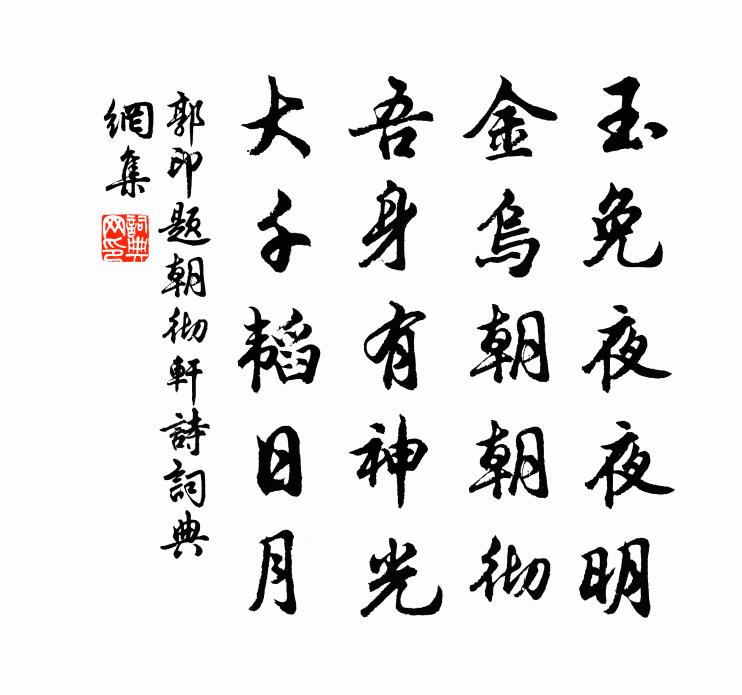 玉免夜夜明
金烏朝朝彻
吾身有神光
大千韬日月
郭印题朝彻軒詩詞典
網集
詞典网印